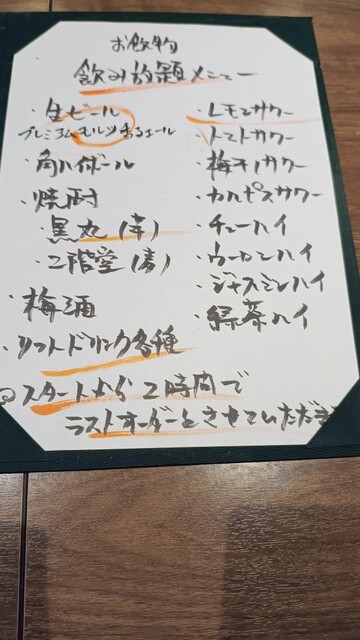 お飲物
飲み放題メニュー
・生ビール
プレミアムモルツ香るエール
・角ハイボール
・焼酎
・黒丸(芋)
・二階堂(麦)
・梅酒
・ソフトドリンク各種
・レモンサワー
・トマトサワー
・梅干サワー
・カルピスサワー
・チューハイ
・ウーロンハイ
・ジャスミンハイ
・緑茶ハイ
スタートから2時間で
ラストオーダーとさせていただき